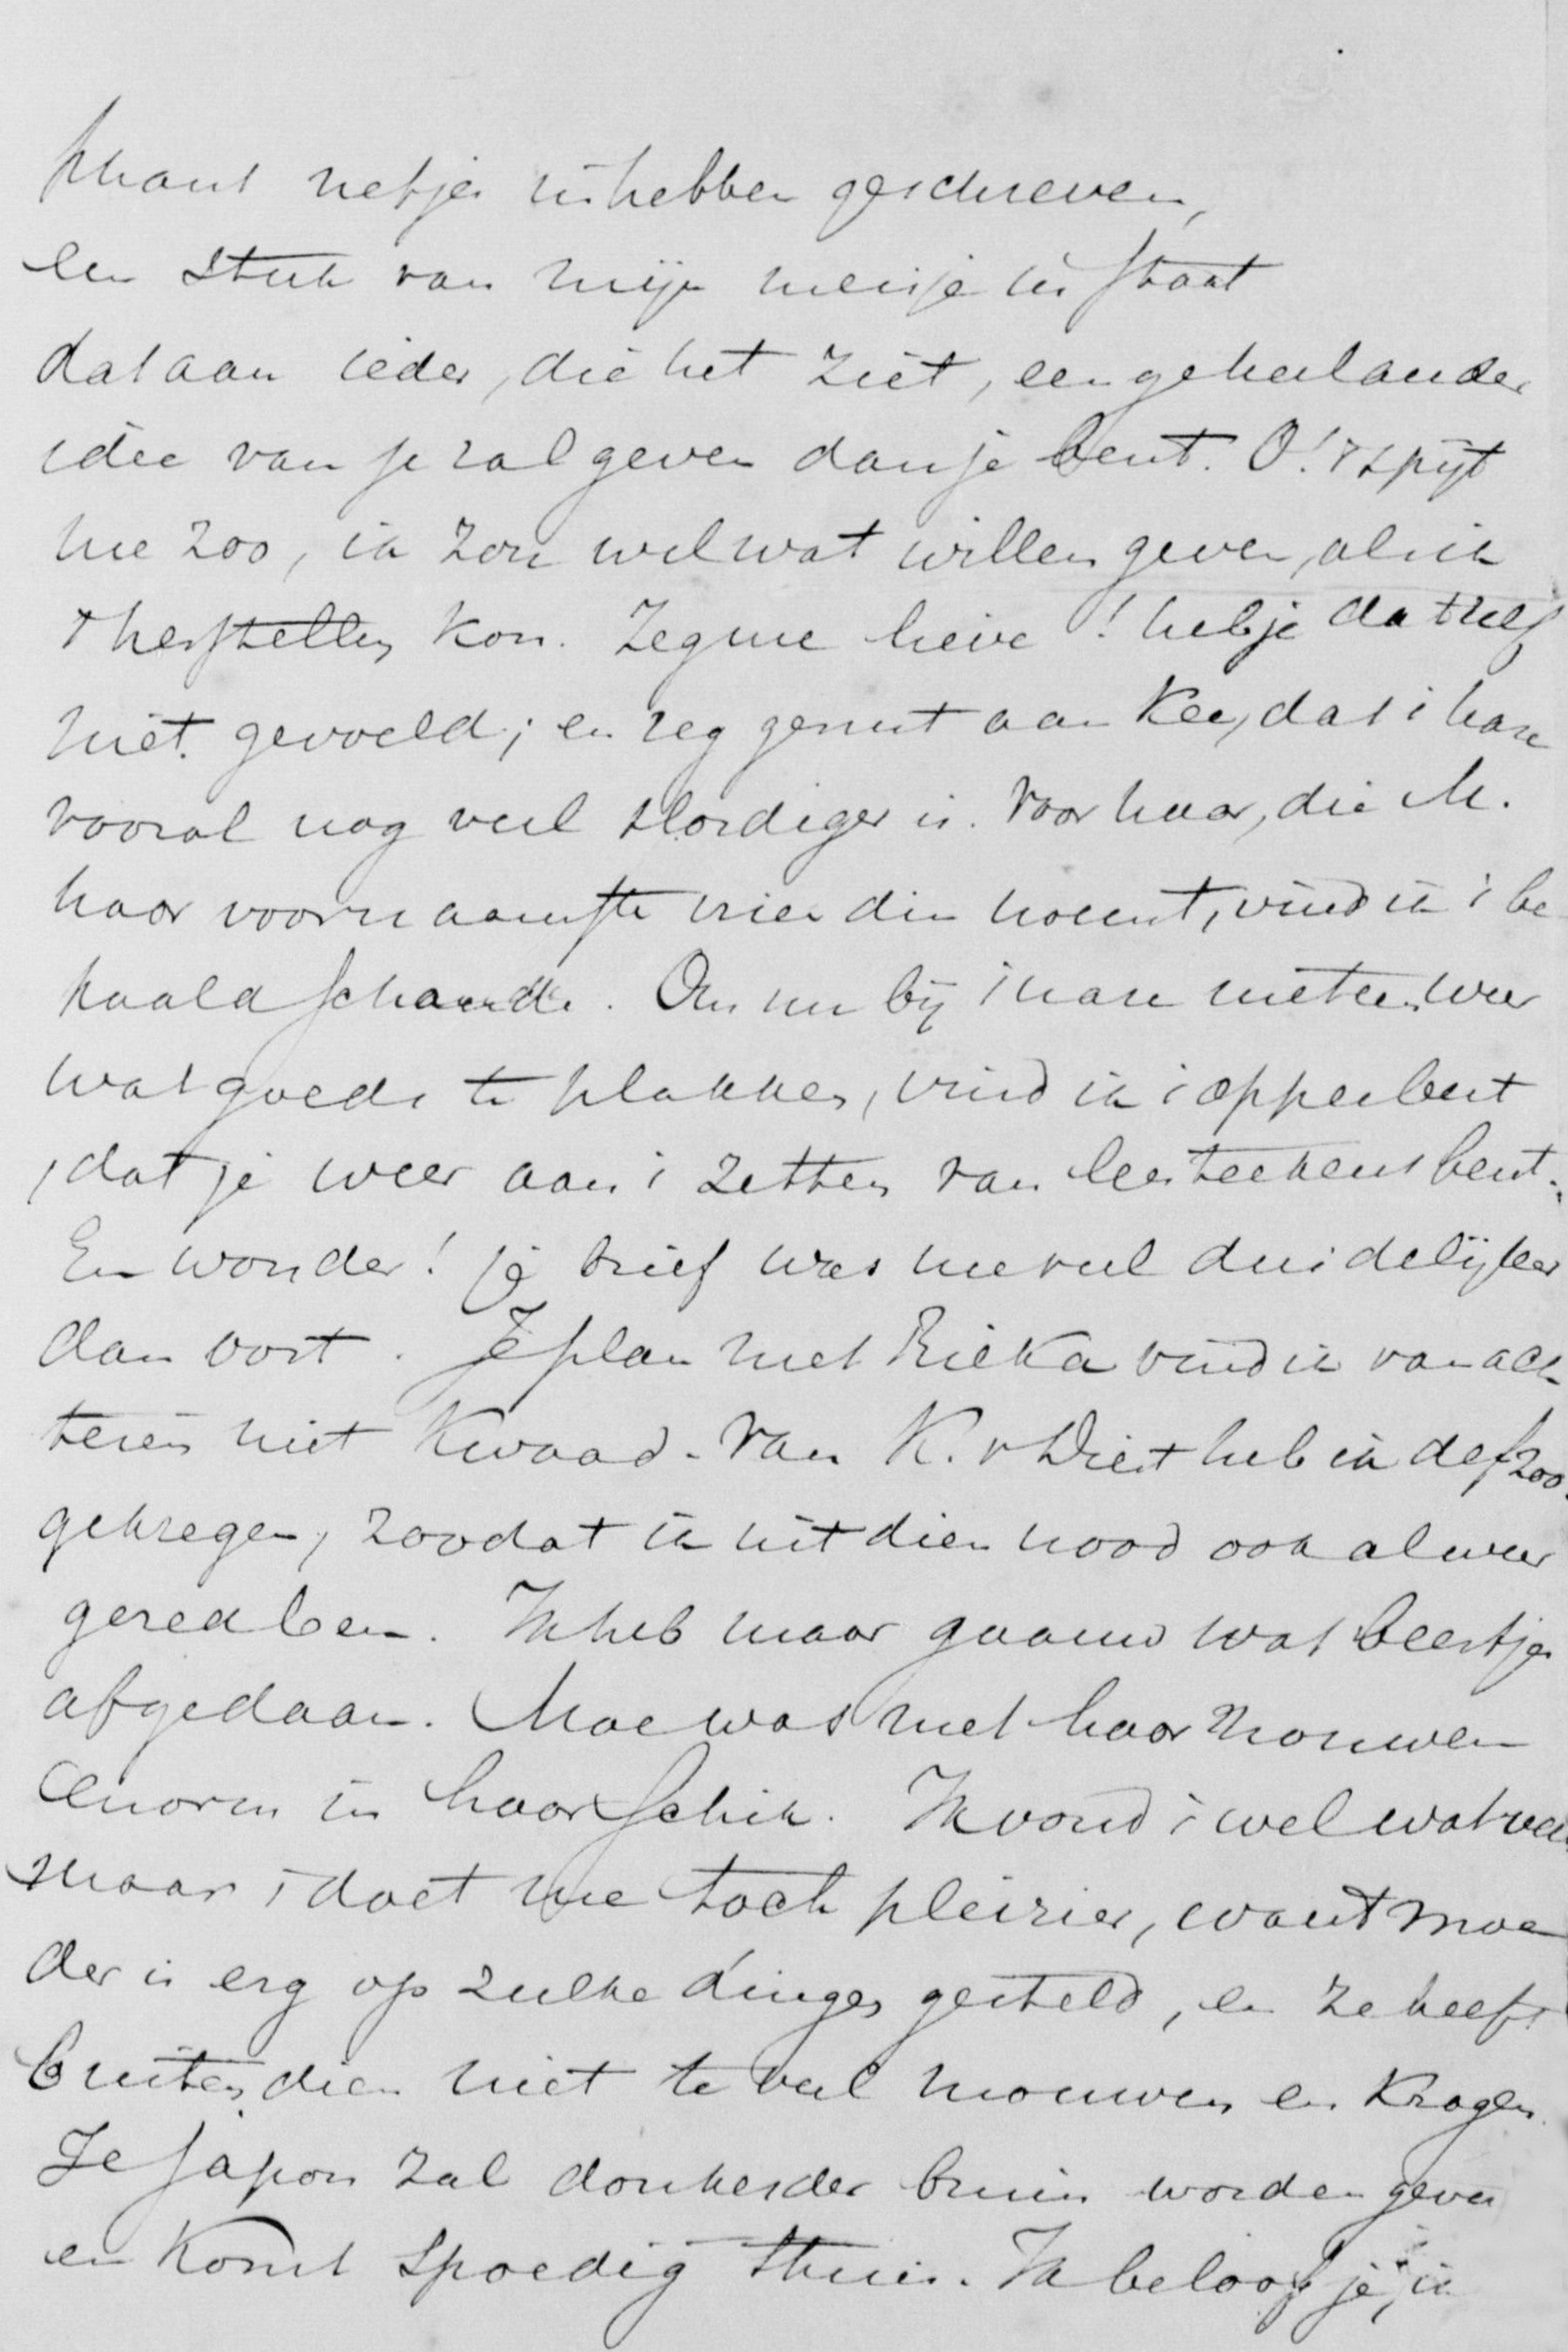 nhaus netjes in hebben geschreven,
een stuk van mijn meisje in staat
dat aan ieder, die het ziet, een geheel ander
idee van je zal geven dan je bent. O! 't spijt
me zoo, ik zou wel wat willen geven, als ik
't herstellen kon. Zeg me lieve! heb je dat zelf
niet gevoeld; en zeg gerust aan Kee, dat 't hare
vooral nog veel slordiger is. Voor haar, die M.
haar voornaamste vriendin noemt, vind ik 't be
paald schande. Om nu bij 't nare meteen weer
wat goeds te plakken, vind ik 't opperbest
, dat je weer aan 't zetten van leesteekens bent.
En wonder! je brief was me veel duidelijker
dan ooit. Je plan met Rieka vind ik van ach
teren niet kwaad. Van K. v Diest heb ik de f200.
gekregen, zoodat ik uit dien nood ook al weer
gered ben. Ik heb maar gaauw wat beestjes
afgedaan. Moe was met haar mouwen
enorm in haar schik. Ik vond 't wel wat veel
maar 't doet me toch pleizier, want moe
der is erg op zulke dingen gesteld, en ze heeft
buitendien niet te veel mouwen en kragen.
Je japon zal donkerder bruin worden geverf
en komt spoedig thuis. Ik beloof je, ik